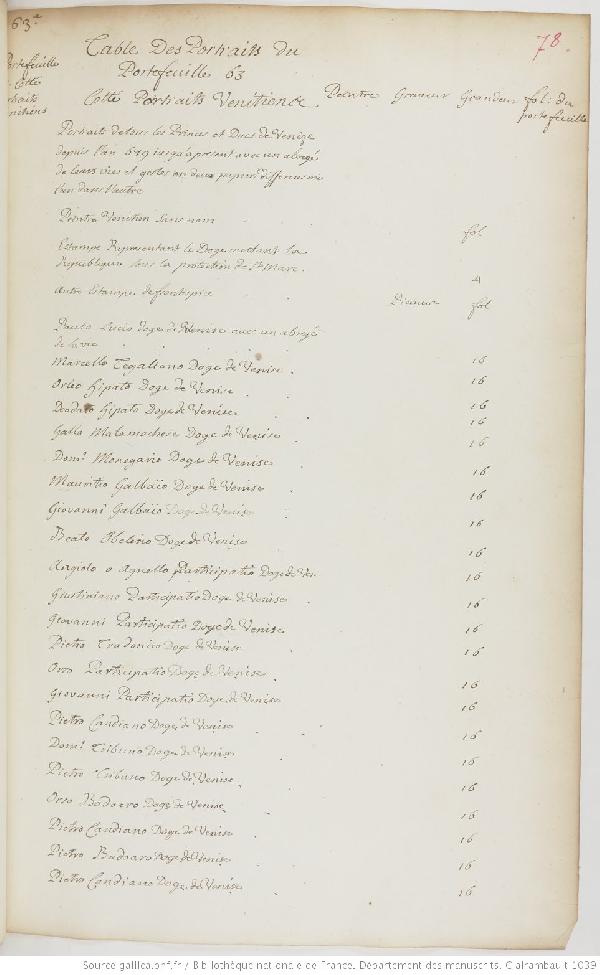 63e
78.
Portefeuille
Cotté
Portraits
Venitiens
Table Des Portraits du
Portefeuille 63
Cotté Portraits Venitiens. Peintre Graveur Grandeur fol: du
portefeuille
Portraits de tous les Princes et Ducs de Venize
depuis l'an 679 jusqu'a present avec un abregé
de leurs vies et gestes en deux papiers differens mis
l'un dans l'autre
Peintre Venitien sans nom fol
Estampe Representant le Doge mettant la
Republique sous la protection de St Marc. 4
Autre Estampe de frontispice Piccinus fol
Paulo Lucio doge de Venise avec un abregé
de sa vie 16
Marcello Tegaliano Doge de Venise. 16
Orleo Hipato Doge de Venise. 16
Deodato Hipato Doge de Venise 16
Galla Malamochese Doge de Venise. 16
Domo Monegario Doge de Venise 16
Mauritio Galbaio Doge de Venise 16
Giovanni Galbaio Doge de Venise 16
Beato Obelerio Doge de Venise 16
Angiolo o Agnello Participatio Doge de Ven 16
Giustiniano Participatio Doge de Venise 16
Giovanni Participatio Doge de Venise 16
Pietro Tradonico Doge de Venise 16
Orso Participatio Doge de Venise 16
Giovanni Participatio Doge de Venise 16
Pietro Candiano Doge de Venise 16
Domo Tribuno Doge de Venise 16
Pietro Tribuno Doge de Venise 16
Orso Badoero Doge de Venise 16
Pietro Candiano Doge de Venise 16
Pietro Badoaro Doge de Venise 16
Pietro Candiano Doge de Venise 16
Source gallica.bnf.fr / Bibliothèque nationale de France. Département des manuscrits. Clairambault 1039